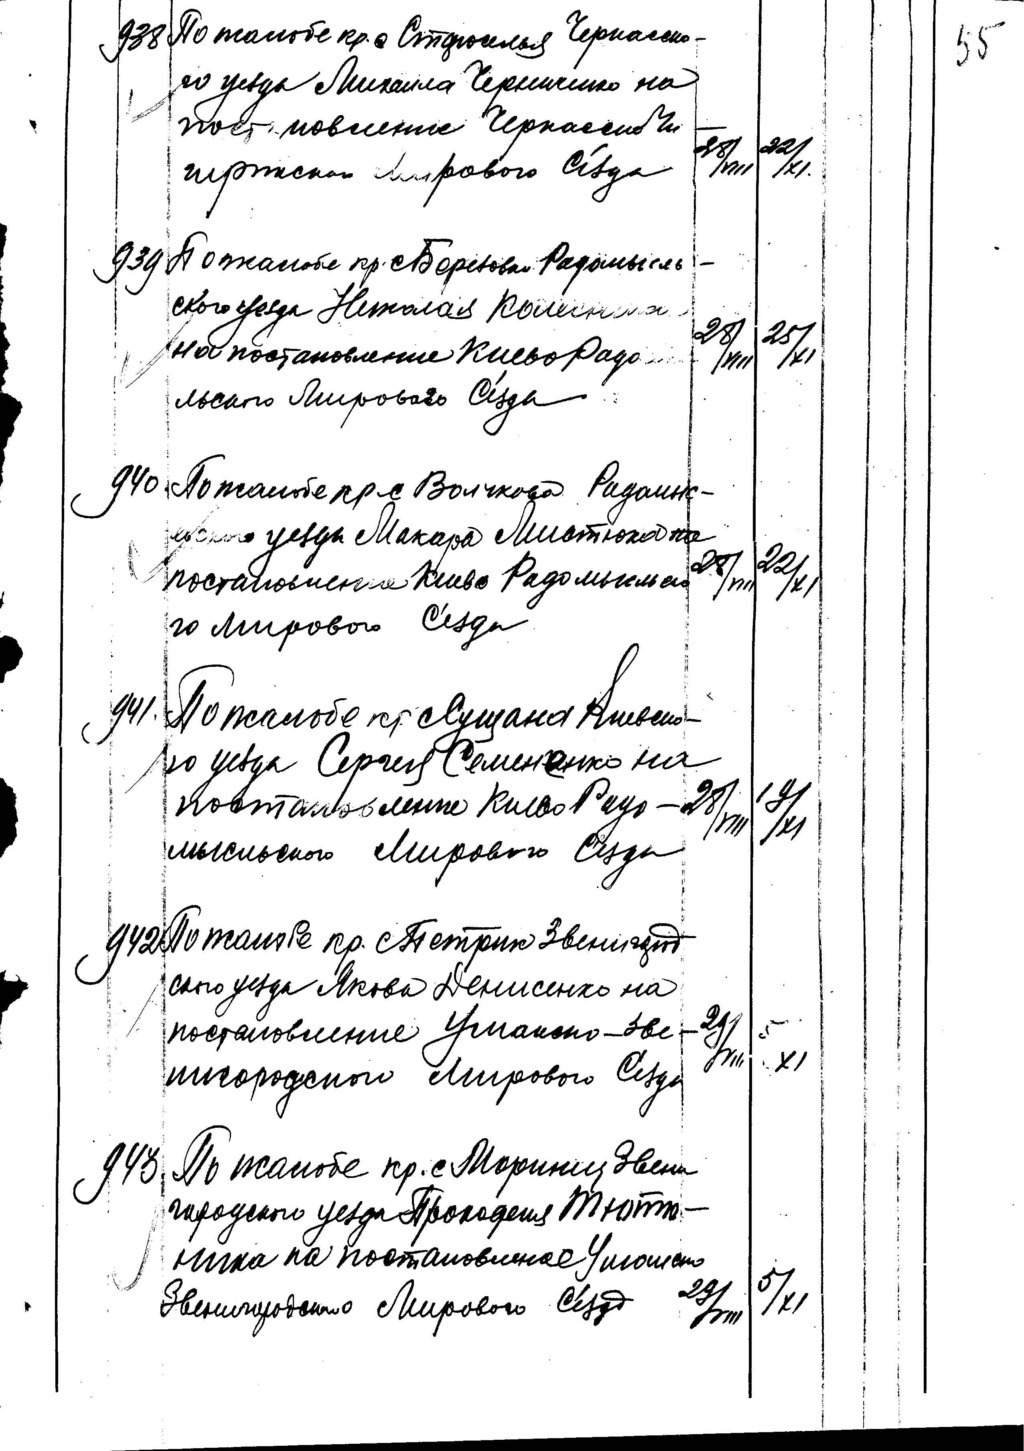 55
938 По жалобе кр. с Стоселья Черкасско-
го уезда Михаила Черниченко на
постановление Черкасско Чи
гиринского Мирового Съезда 28/VIII 22/XI.
939 По жалобе кр. с Березовки Радомысль-
ского уезда Николая
на постановление Киево Радо 28/VIII 25/XI
льского Мирового Съезда
940 По жалобе кр. с Волчкова Радомыс-
льского уезда Макара Мистюка на
постановление Киево Радомысльско 28/VIII 22/XI
го Мирового Съезда
941. По жалобе кр. с Сущана Киевско-
го уезда Сергея Семененко на
постановление Киево Радо- 28/VIII 19/XI
мысльского Мирового Съезда
942 По жалобе кр. с Петрик Звенигород
ского уезда Якова Денисенко на
постановление Уманско-Зве- 29/VIII 5 XI
нигородского Мирового Съезда
943. По жалобе кр. с Моринец Звени
городского уезда Прокофия Тютю-
ника на постановление Уманско
Звенигородского Мирового Съезда 29/VIII 5/XI